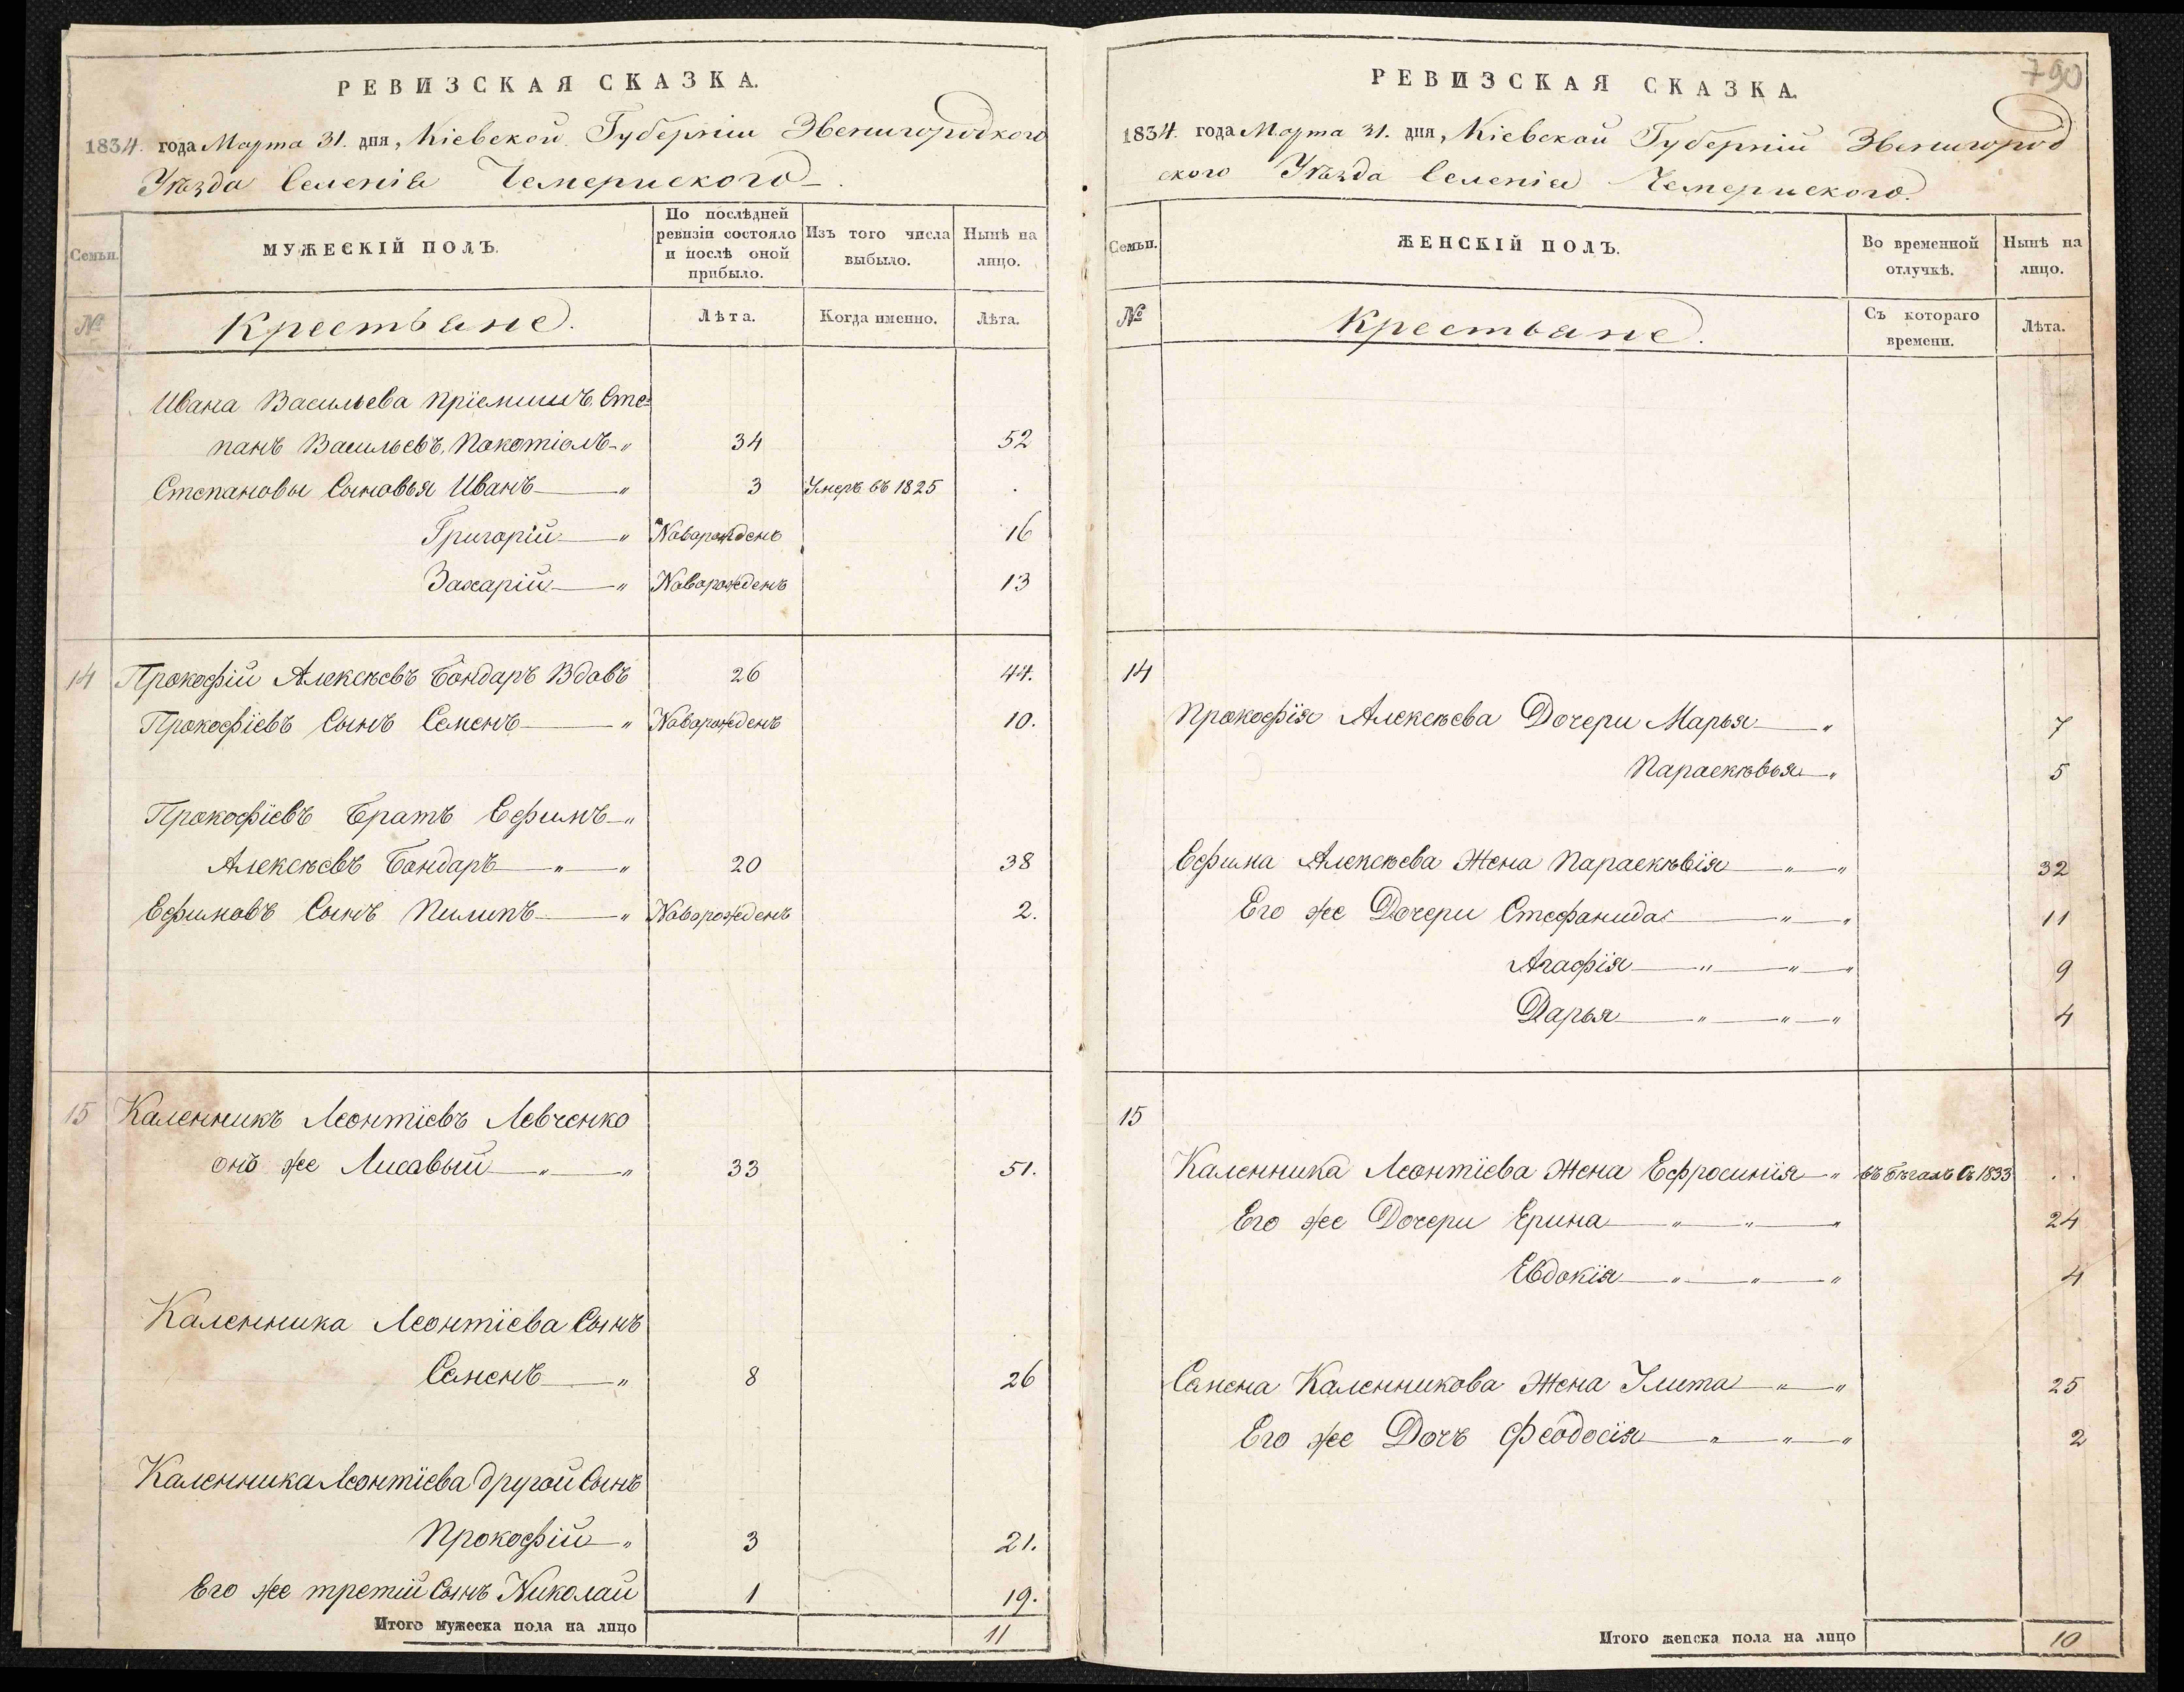 РЕВИЗСКАЯ СКАЗКА.
1834. года Марта 31. дня, Кіевской Губерніи Звенигородкого
Уѣзда Селенія Чемериского
Семьи.
МУЖЕСКІЙ ПОЛЪ.
По послѣдней ревизіи состояло и послѣ оной прибыло.
Изъ того числа выбыло.
Нынѣ на лицо.
№
Крестьяне.
Лѣта.
Когда именно.
Лѣта.
Ивана Васильева пріемышъ Сте=
панъ Васильевъ Покотіолъ 34 52
Степановы Сыновья Иванъ 3 Умеръ въ 1825
Григорій Новорожденъ 16
Захарій Новорожденъ 13
14 Прокофій Алексѣевъ Бондаръ Вдовъ 26 44.
Прокофіевъ Сынъ Семенъ Новорожденъ 10.
Прокофіевъ Братъ Ефимъ
Алексѣевъ Бондаръ 20 38
Ефимовъ Сынъ Пилипъ Новорожденъ 2.
15 Каленникъ Леонтіевъ Левченко
онъ же Лисавый 33 51.
Каленника Леонтіева Сынъ
Семенъ 8 26
Каленника Леонтіева другой Сынъ
Прокофій 3 21.
Его же третій Сынъ Николай 1 19.
Итого мужеска пола на лицо 11
790
РЕВИЗСКАЯ СКАЗКА.
1834. года Марта 31. дня, Кіевской Губерніи Звенигород
ского Уѣзда Селенія Чемериского.
Семьи.
ЖЕНСКІЙ ПОЛЪ.
Во временной отлучкѣ.
Нынѣ на лицо.
№
Крестьяне.
Съ котораго времени.
Лѣта.
14
Прокофія Алексѣева Дочери Марья 7
Параскѣвья 5
Ефима Алексѣева Жена Параскѣвія 32
Его же Дочери Стефанида 11
Агафія 9
Дарья 4
15
Каленника Леонтіева Жена Ефросинія въ бѣгахъ Съ 1833
Его же Дочери Ерина 24
Евдокія 4
Семена Каленникова Жена Улита 25
Его же Дочъ Феодосія 2
Итого женска пола на лицо 10